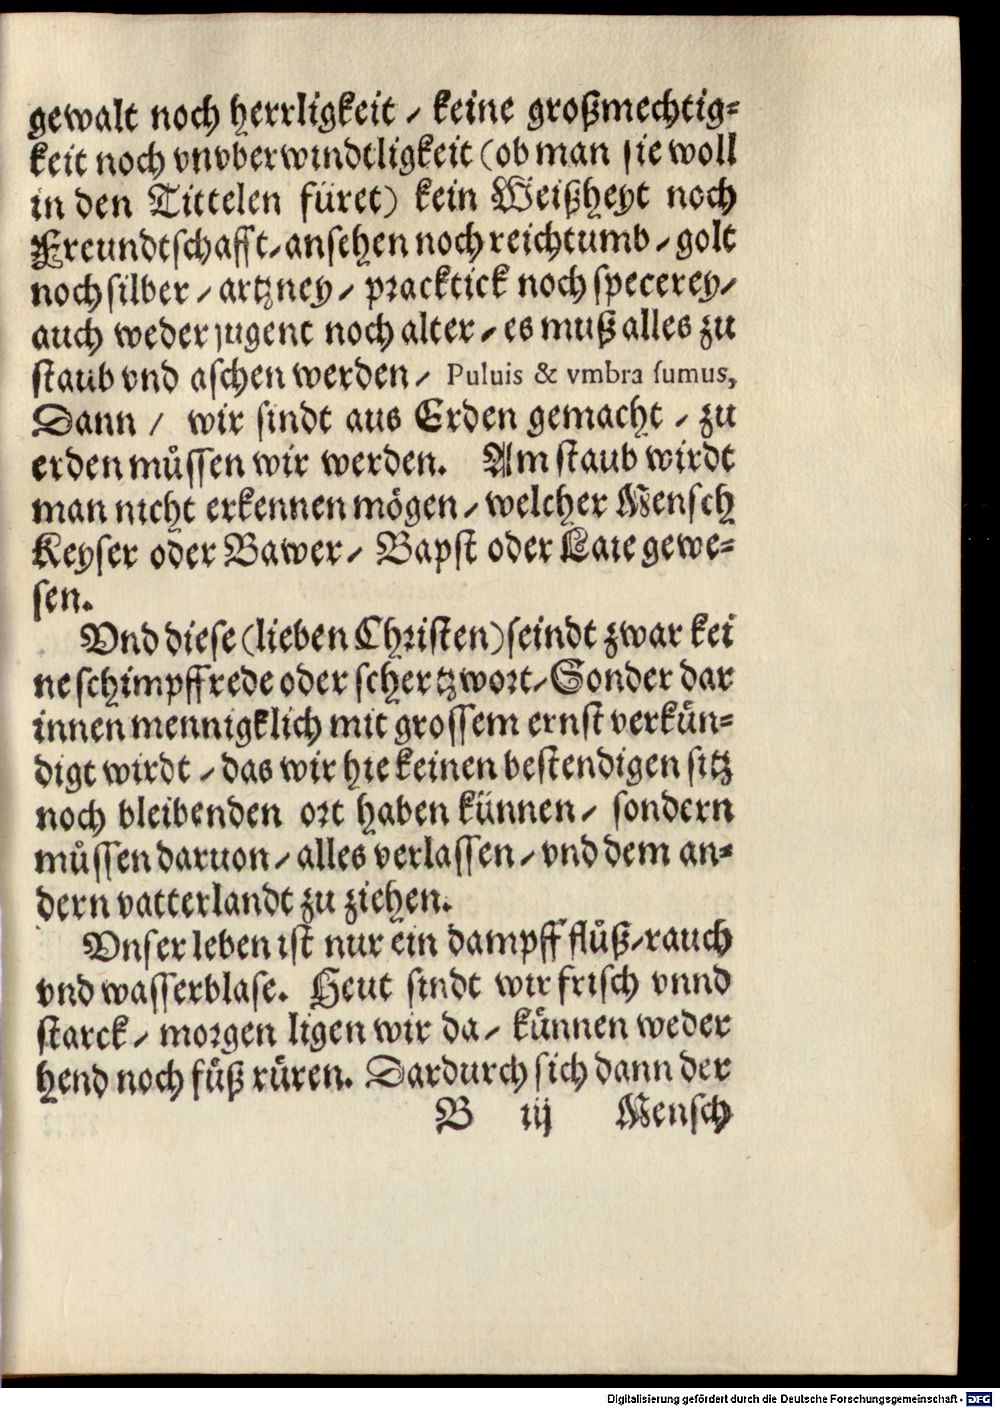 gewalt noch herrligkeit / keine großmechtig⸗
keit noch vnvberwindtligkeit (ob man sie woll
in den Tittelen füret) kein Weißheyt noch
Freundtschafft / ansehen noch reichtumb / golt
noch silber / artzney / pracktick noch specerey /
auch weder jugent noch alter / es muß alles zu
staub vnd aschen werden / Puluis & vmbra sumus,
Dann / wir sindt aus Erden gemacht / zu
erden můssen wir werden. Am staub wirdt
man nicht erkennen mögen / welcher Mensch
Keyser oder Bawer / Bapst oder Laie gewe⸗
sen.
Vnd diese (lieben Christen) seindt zwar kei
ne schimpffrede oder schertzwort / Sonder dar
innen mennigklich mit grossem ernst verkün⸗
digt wirdt / das wir hie keinen bestendigen sitz
noch bleibenden ort haben künnen / sondern
můssen daruon / alles verlassen / vnd dem an⸗
dern vatterlandt zu ziehen.
Vnser leben ist nur ein dampff flůß / rauch
vnd wasserblase. Heut sindt wir frisch vnnd
starck / morgen ligen wir da / künnen weder
hend noch fůß rüren. Dardurch sich dann der
B iij Mensch
Digitalisierung gefördert durch die Deutsche Forschungsgemeinschaft - DFG